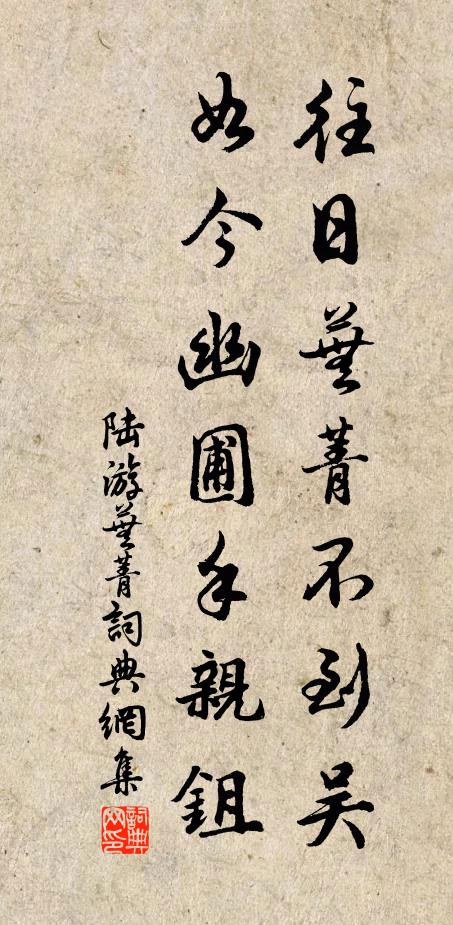 往日蕪菁不到吴
如今幽圃手親鉏
陆游蕪菁詞典網集
詞典
网印